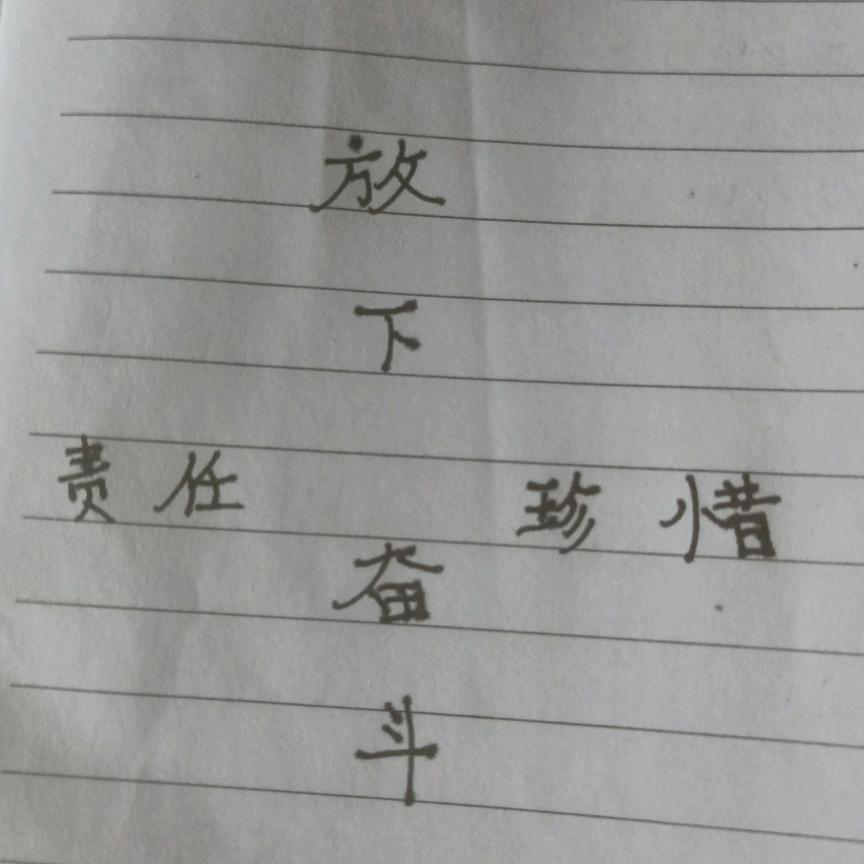 放下
责任
珍惜
奋斗